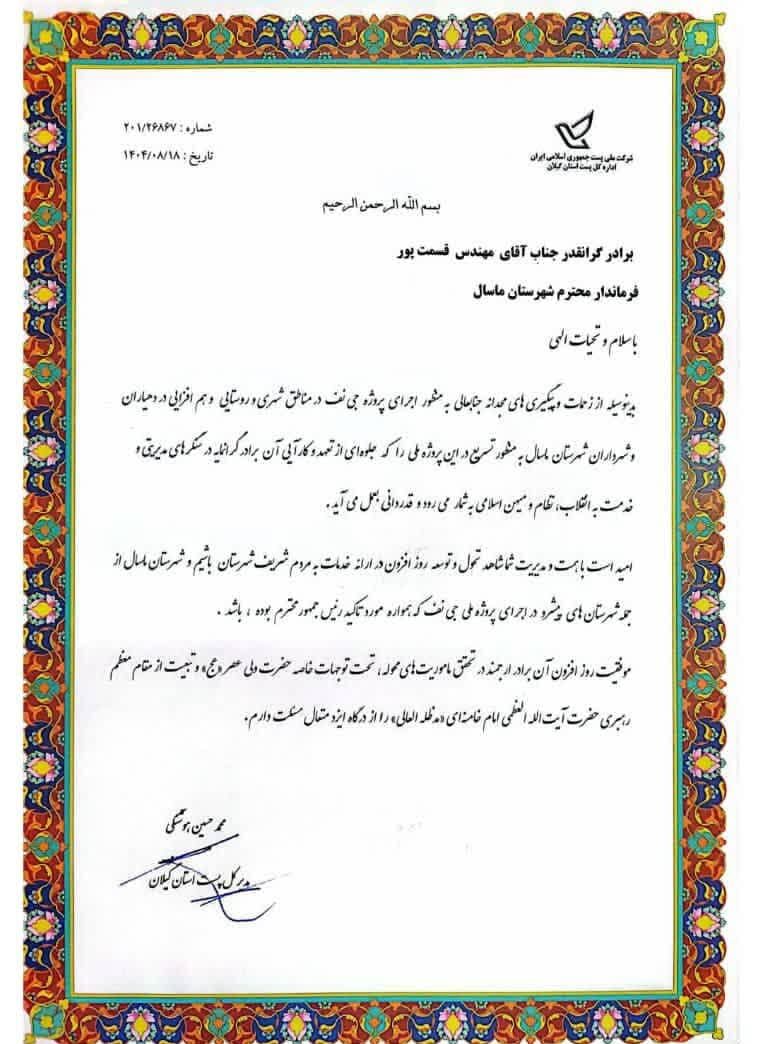 شرکت ملی پست جمهوری اسلامی ایران
اداره کل پست استان گیلان
شماره : ۲۰۱/۲۶۸۶۷
تاریخ : ۱۴۰۴/۰۸/۱۸
بسم الله الرحمن الرحیم
برادر گرانقدر جناب آقای مهندس قسمت پور
فرماندار محترم شهرستان ماسال
با سلام و تحیات الهی
بدینوسیله از زحمات و پیگیری های مجدانه جنابعالی به منظور اجرای پروژه جی نف در مناطق شهری و روستایی و هم افزایی در دهیاران
و شهرداران شهرستان ماسال به منظور تسریع در این پروژه ملی را که جلوه‌ای از تعهد و کارآیی آن برادر گرانمایه در سنگرهای مدیریتی و
خدمت به انقلاب، نظام و میهن اسلامی به شمار می رود و قدردانی بعمل می آید .
امید است با همت و مدیریت شما شاهد تحول و توسعه روز افزون در ارائه خدمات به مردم شریف شهرستان باشیم و شهرستان ماسال از
جمله شهرستان های پیشرو در اجرای پروژه ملی جی نف که همواره مورد تاکید رئیس جمهور محترم بوده ، باشد .
موفقیت روز افزون آن برادر ارجمند در تحقق ماموریت‌های محوله ، تحت توجهات خاصه حضرت ولی عصر «عج» و تبعیت از مقام معظم
رهبری حضرت آیت الله العظمی امام خامنه‌ای «مدظله العالی» را از درگاه ایزد متعال مسئلت دارم.
محمد حسین هوشنگی
مدیر کل پست استان گیلان